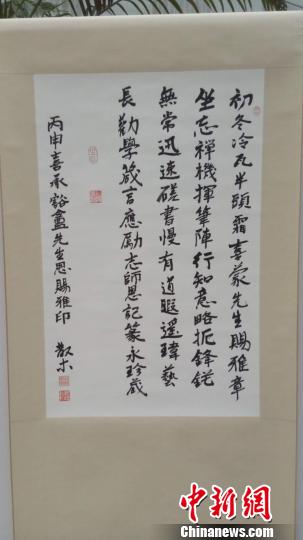 初冬冷瓦半頭霜喜蒙先生賜雅章
坐忘禪機揮筆陣行知意略抳鋒鋩
無常迅速磋書慢有道暇遥瑋藝
長勸學箴言應勵志師恩記篆永珍藏
丙申喜承豁盦先生恩賜雅印
散木
中新網
www.chinanews.com